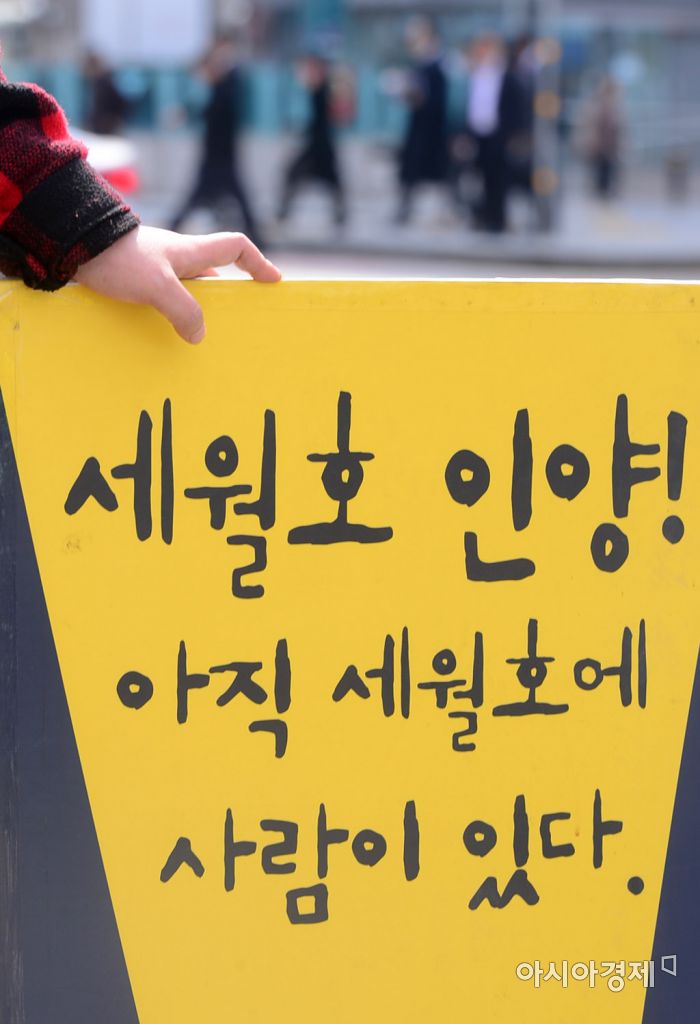 세월호 인양!
아직 세월호에
사람이 있다.
아시아경제